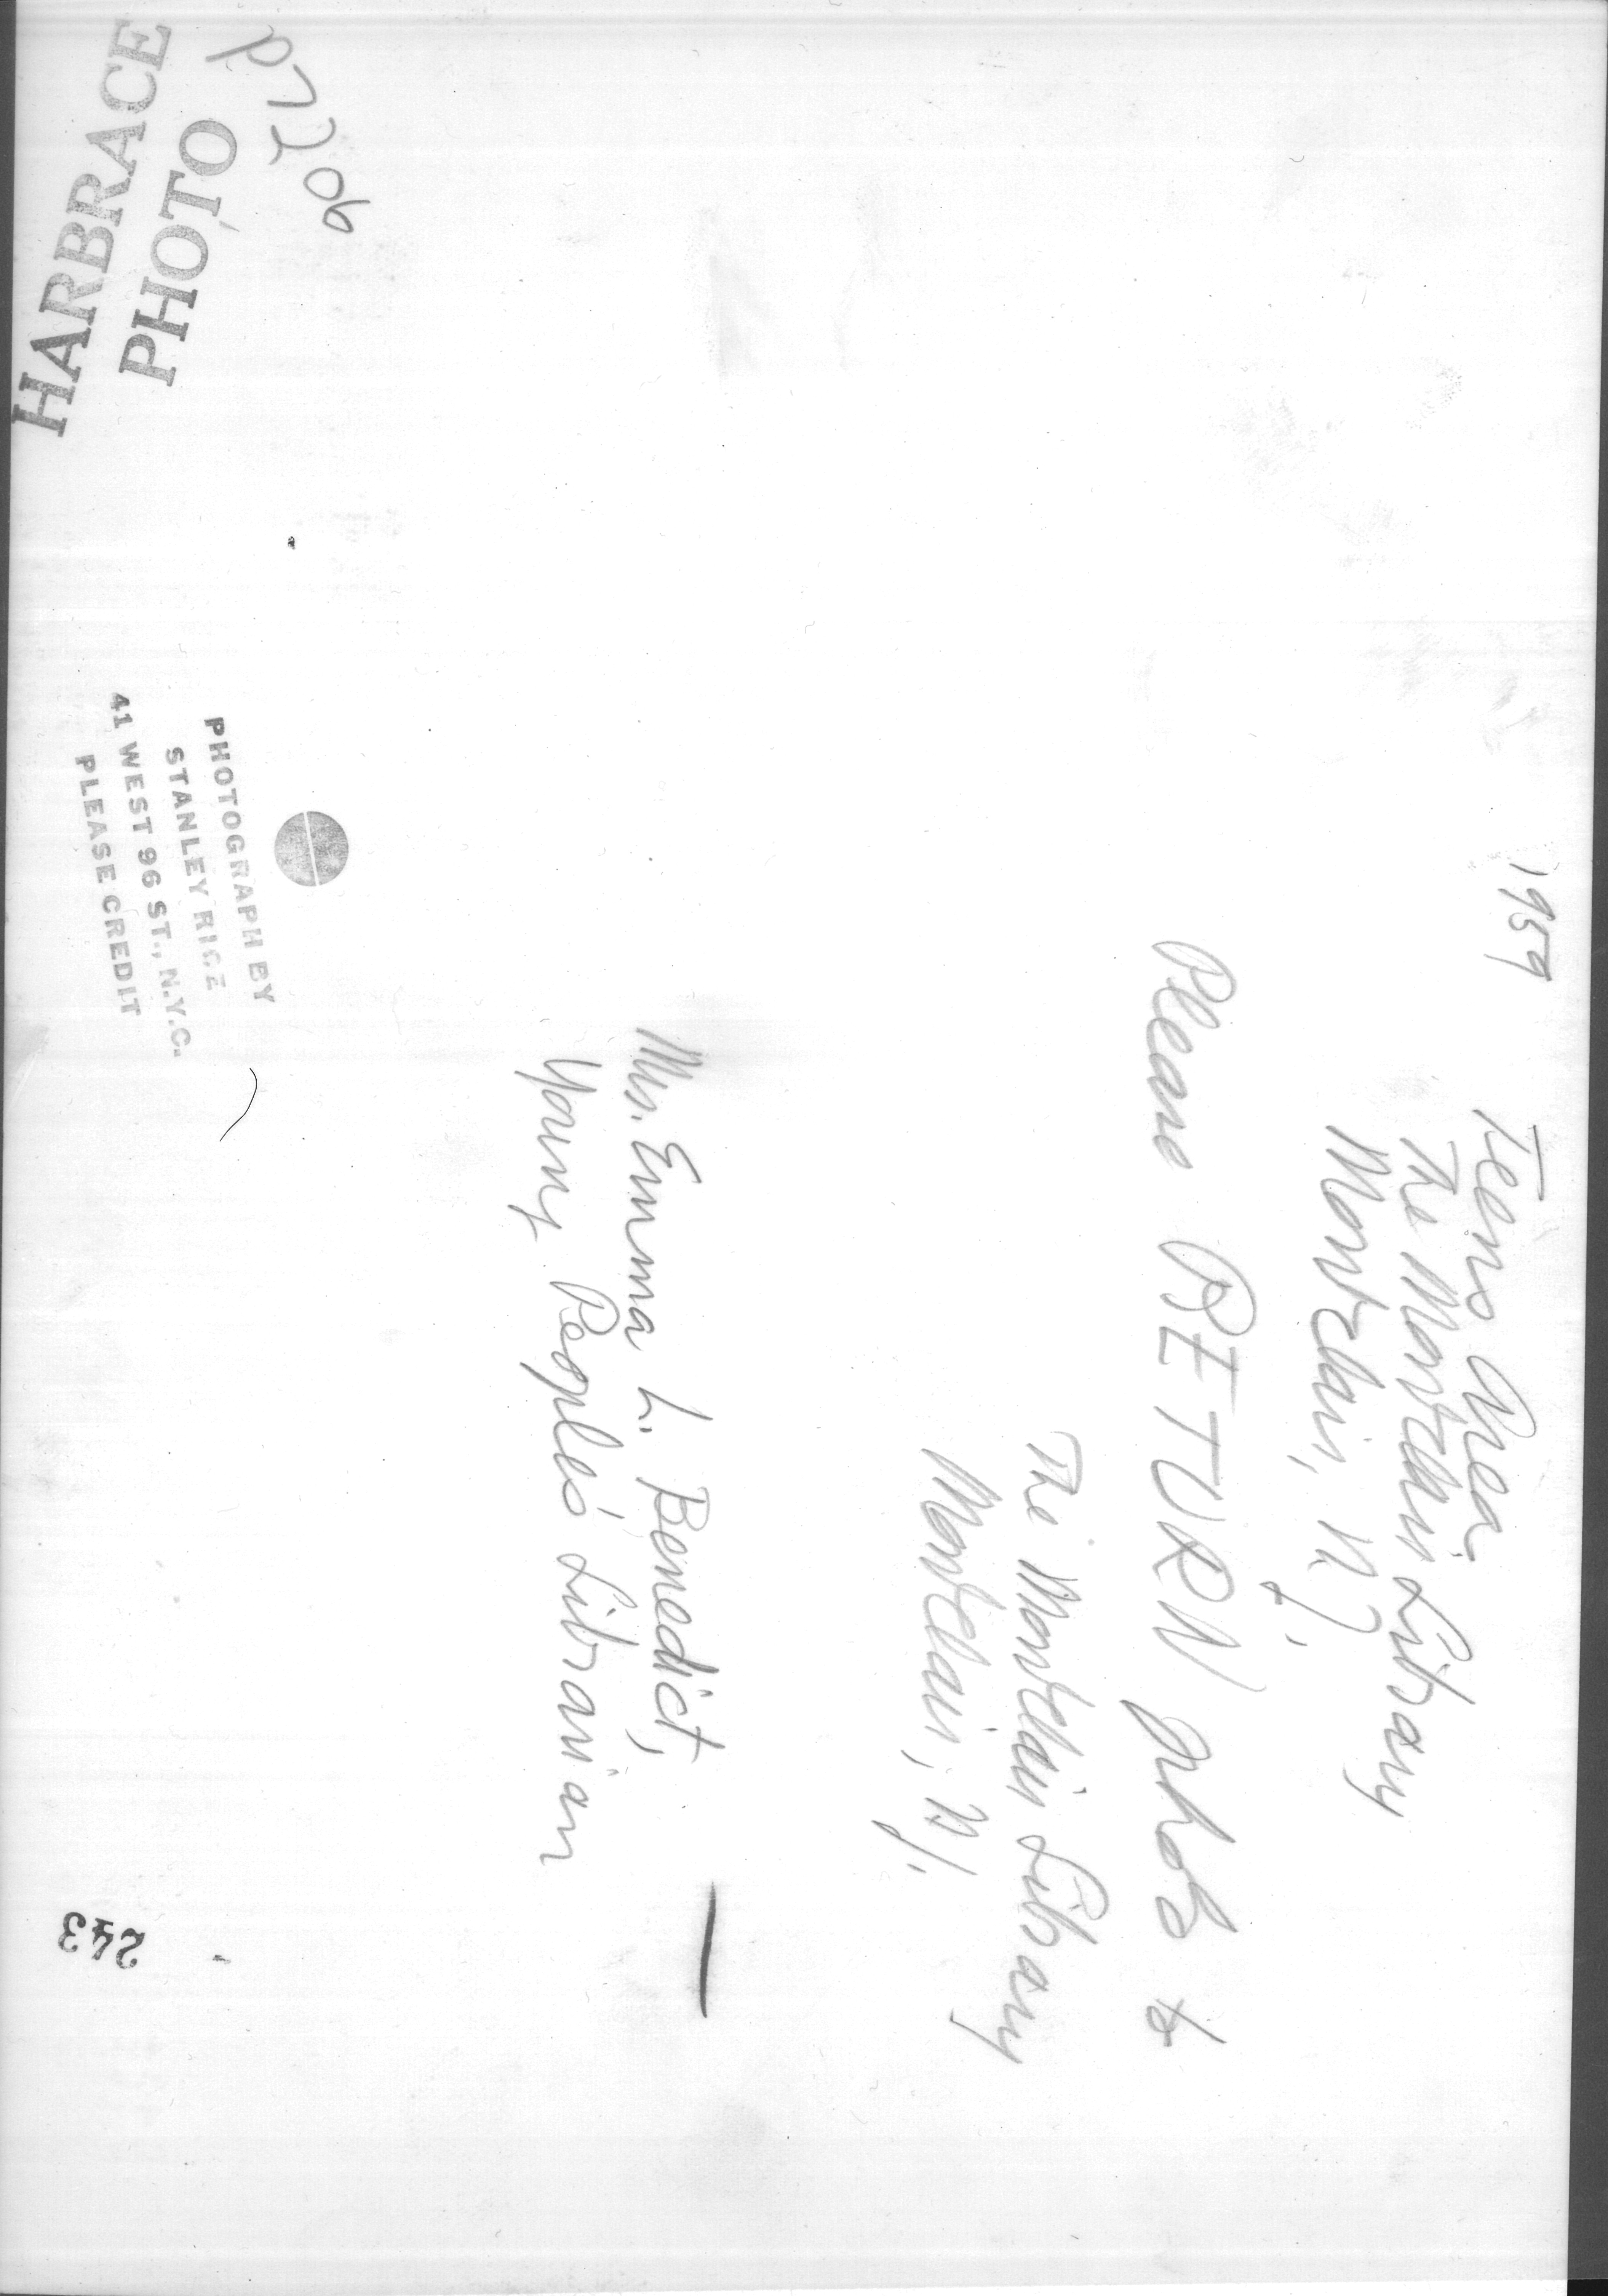 1959
Teens Area
The Montclair Library
Montclair, N.J.
Please RETURN photo to
The Montclair Library
Montclair, N.J.
Mrs. Emma L. Benedict,
Young People's Librarian
PHOTOGRAPH BY
STANLEY RICE
41 WEST 96 ST., N.Y.C.
PLEASE CREDIT
HARBRACE
PHOTO
243